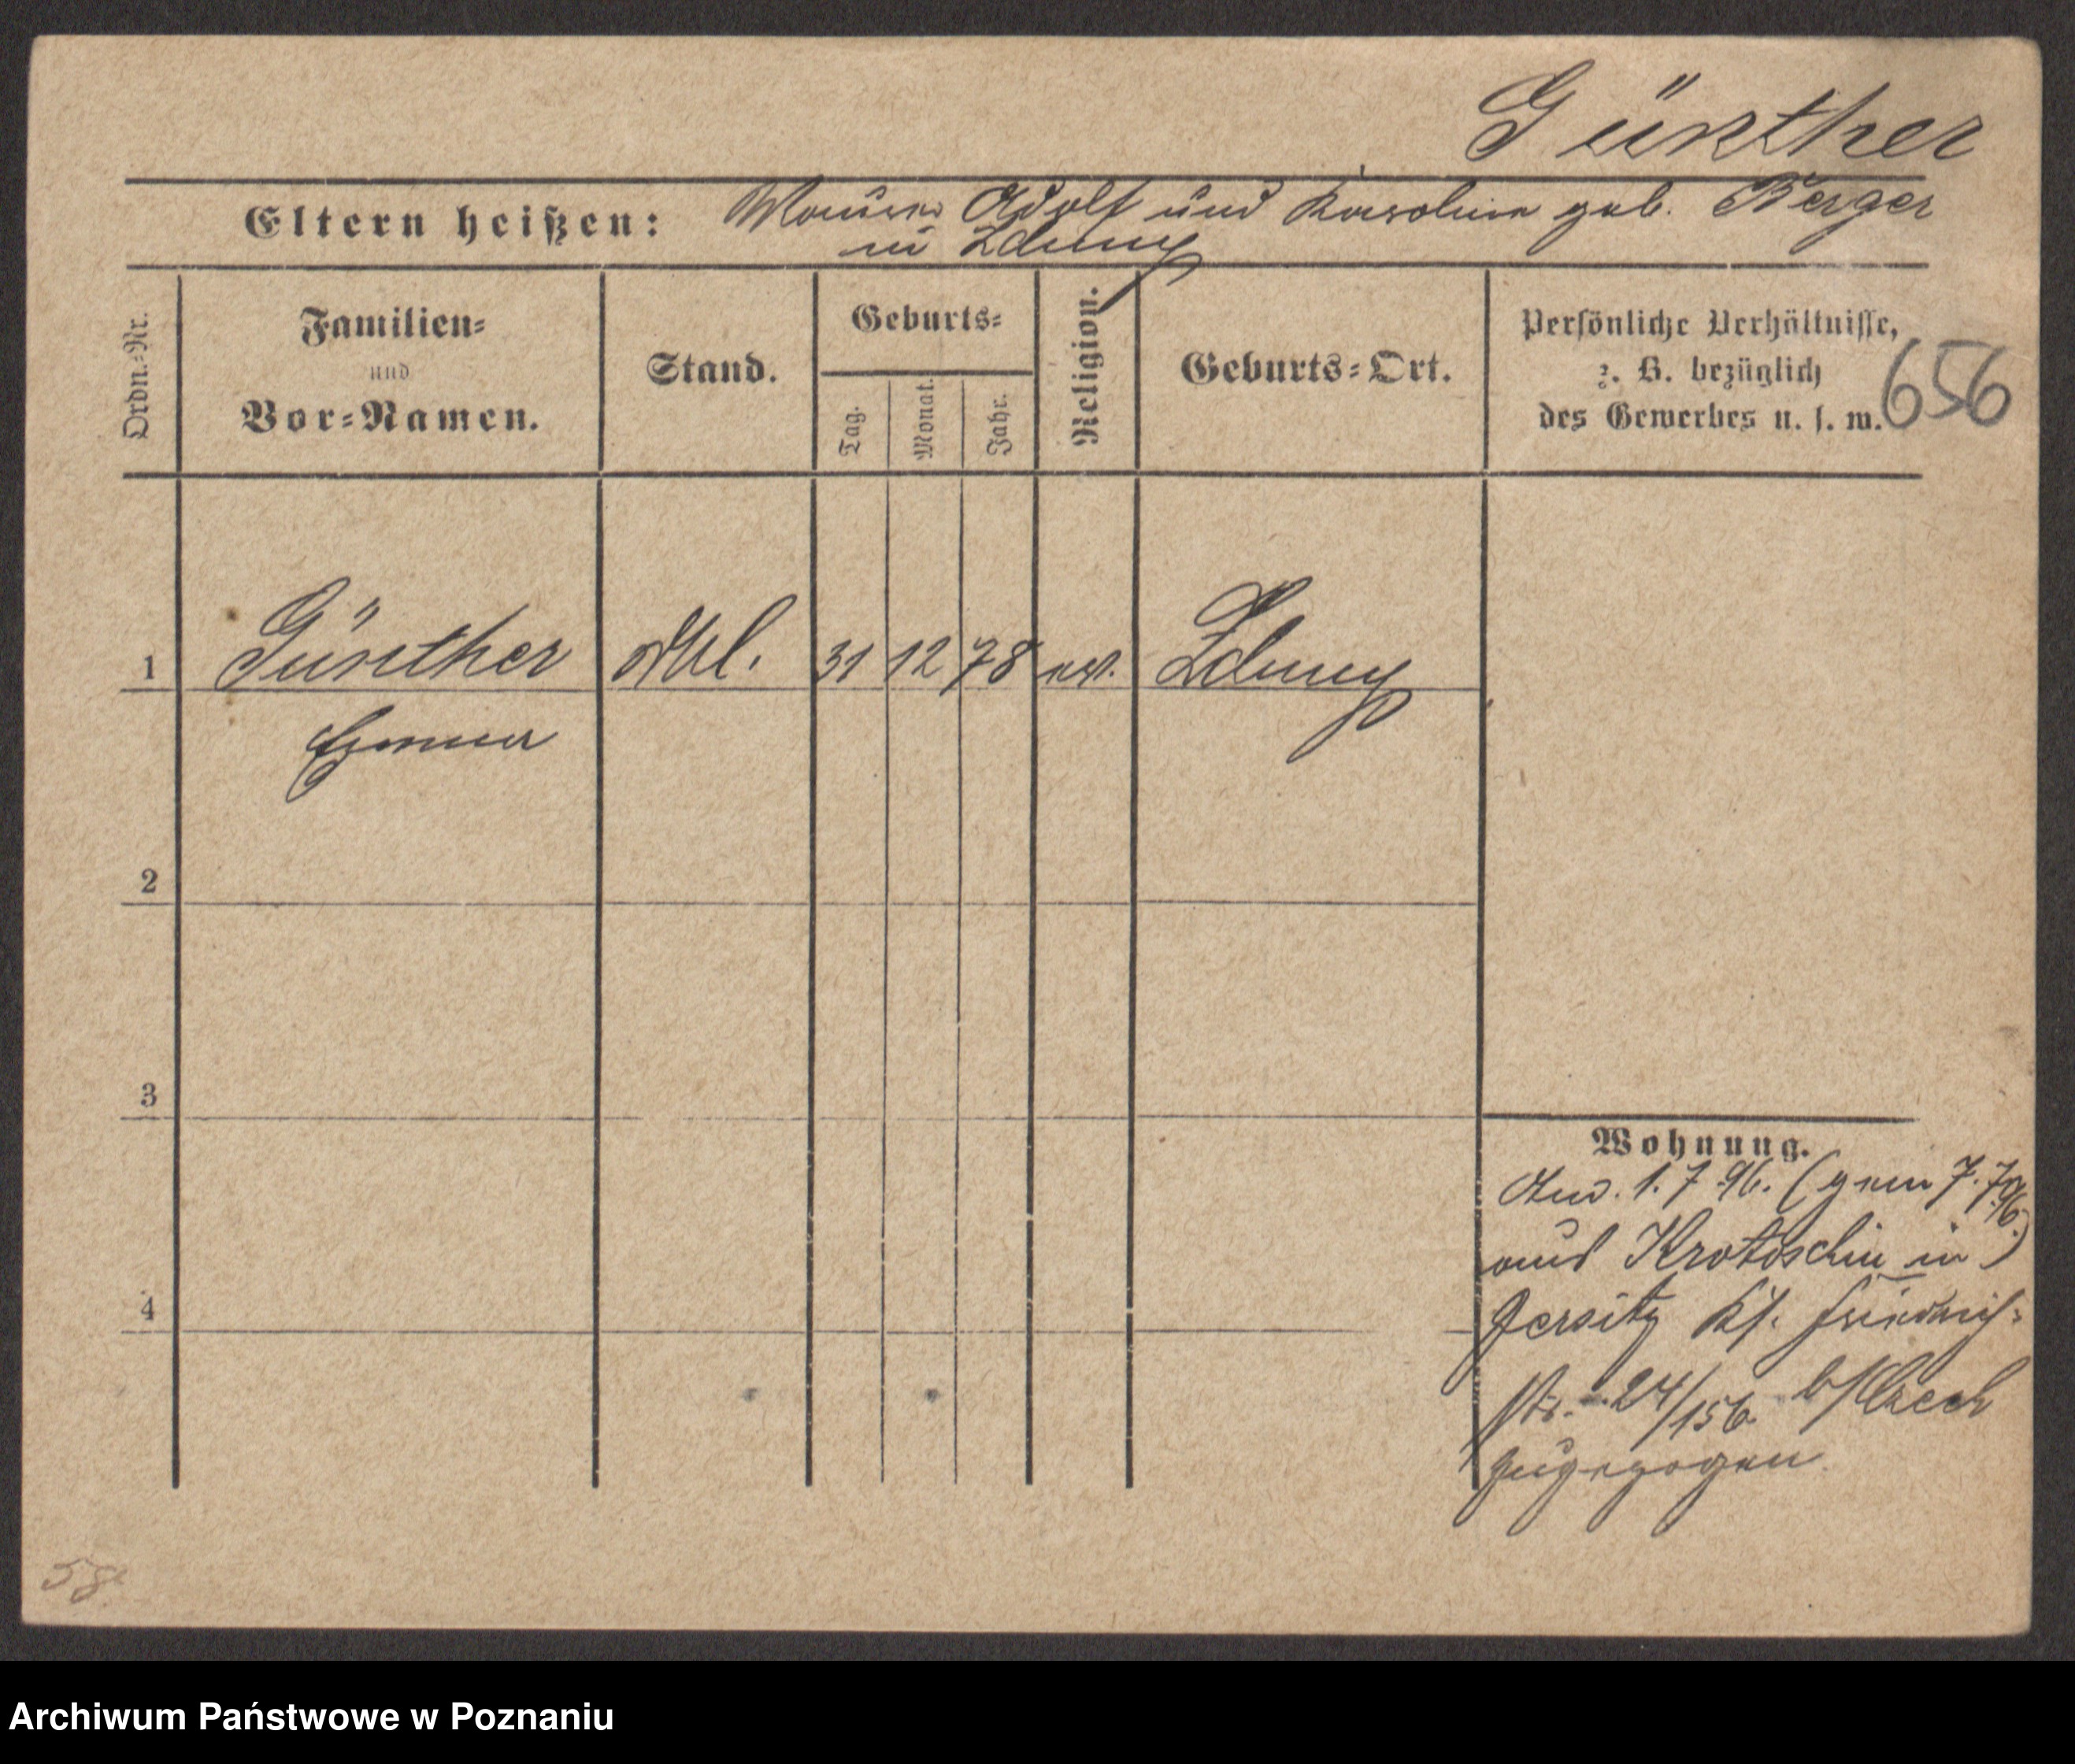 Günther
Eltern heißen: Maurer Adolf und Karoline geb. Berger
in Zduny
Ordn.-Nr.
Familien-
und
Vor-Namen.
Stand.
Geburts-
Tag.
Monat.
Jahr.
Religion.
Geburts-Ort.
Persönliche Verhältnisse,
z. B. bezüglich
des Gewerbes u. s. w.
656
1 Günther 31 12 78 ev. Zduny
Emma
2
3
4
Wohnung.
Am. 1.7.96. (gem 7.7.96.)
aus Krotoschin in
Jersitz Ks. Friedrich-
str. 24/156 b/
zugezogen
58
Archiwum Państwowe w Poznaniu